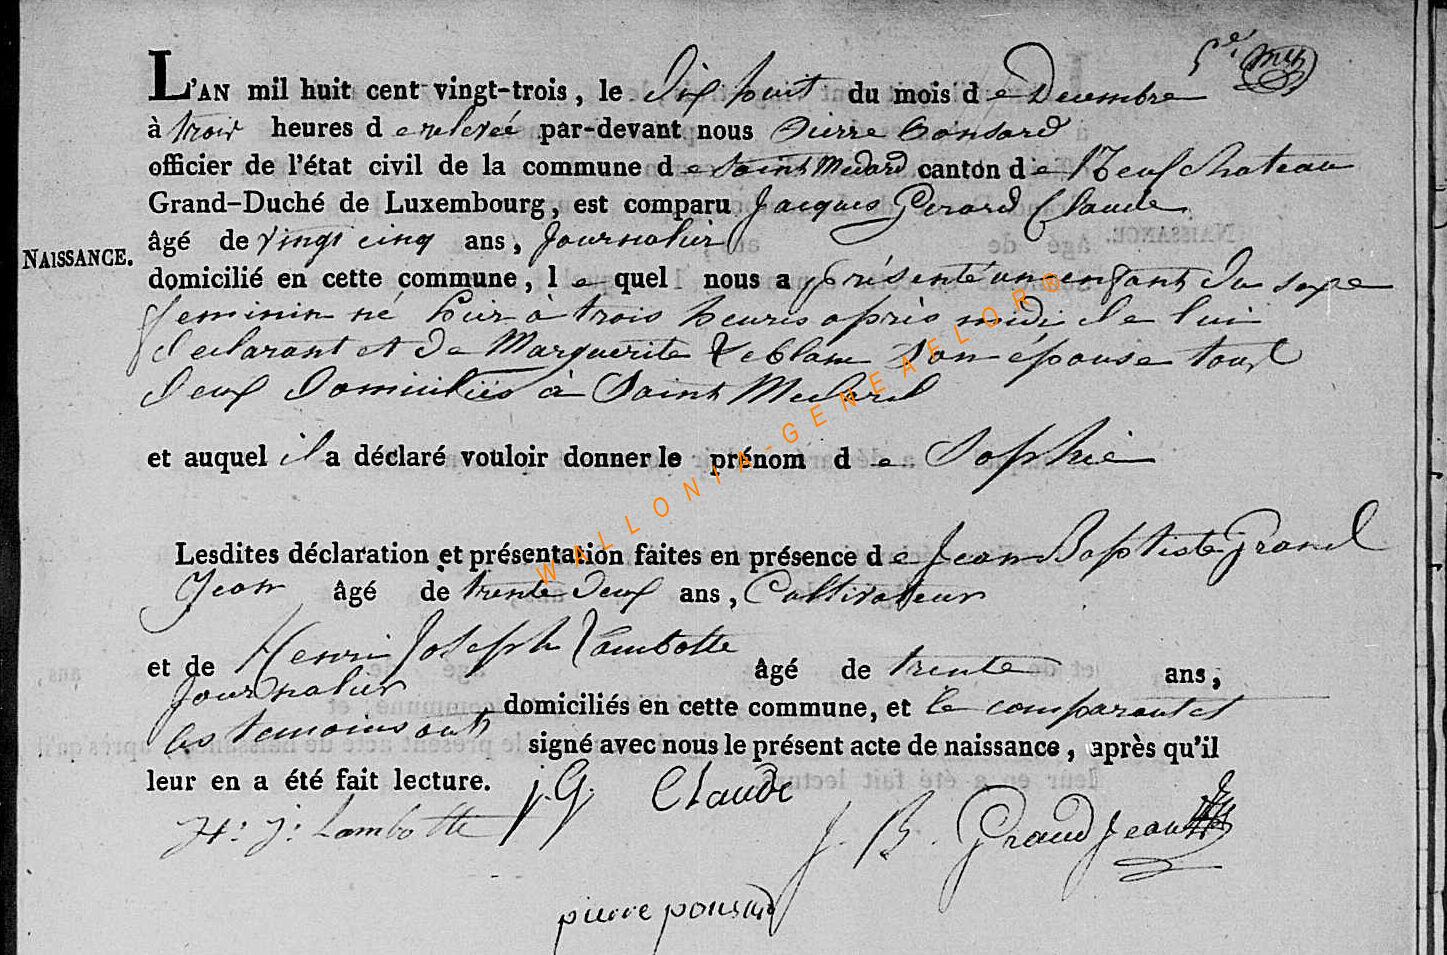 L'AN mil huit cent vingt-trois, le Dix huit du mois de Decembre
à trois heures de relevée par-devant nous Pierre Ponsard
officier de l'état civil de la commune de Saint Medard canton de Neufchateau
Grand-Duché de Luxembourg, est comparu Jacques Gerard Claude
NAISSANCE.
âgé de vingt cinq ans, Journalier
domicilié en cette commune, lequel nous a présenté un enfant du sexe
feminin né hier à trois heures après midi de lui
declarant et de Marguerite Leblanc son épouse tous
deux domiciliés à Saint Medard
et auquel il a déclaré vouloir donner le prénom de Sophie
Lesdites déclaration et présentation faites en présence de Jean Baptiste Grand
Jean âgé de trente deux ans, Cultivateur
et de Henri Joseph Lambotte âgé de trente ans,
Journalier domiciliés en cette commune, et le comparant et
les temoins ont signé avec nous le présent acte de naissance, après qu'il
leur en a été fait lecture.
J. G. Claude
H: J: Lambotte
J. B. GrandJean
pierre ponsard
WALLONIA-GENEAFLOR®